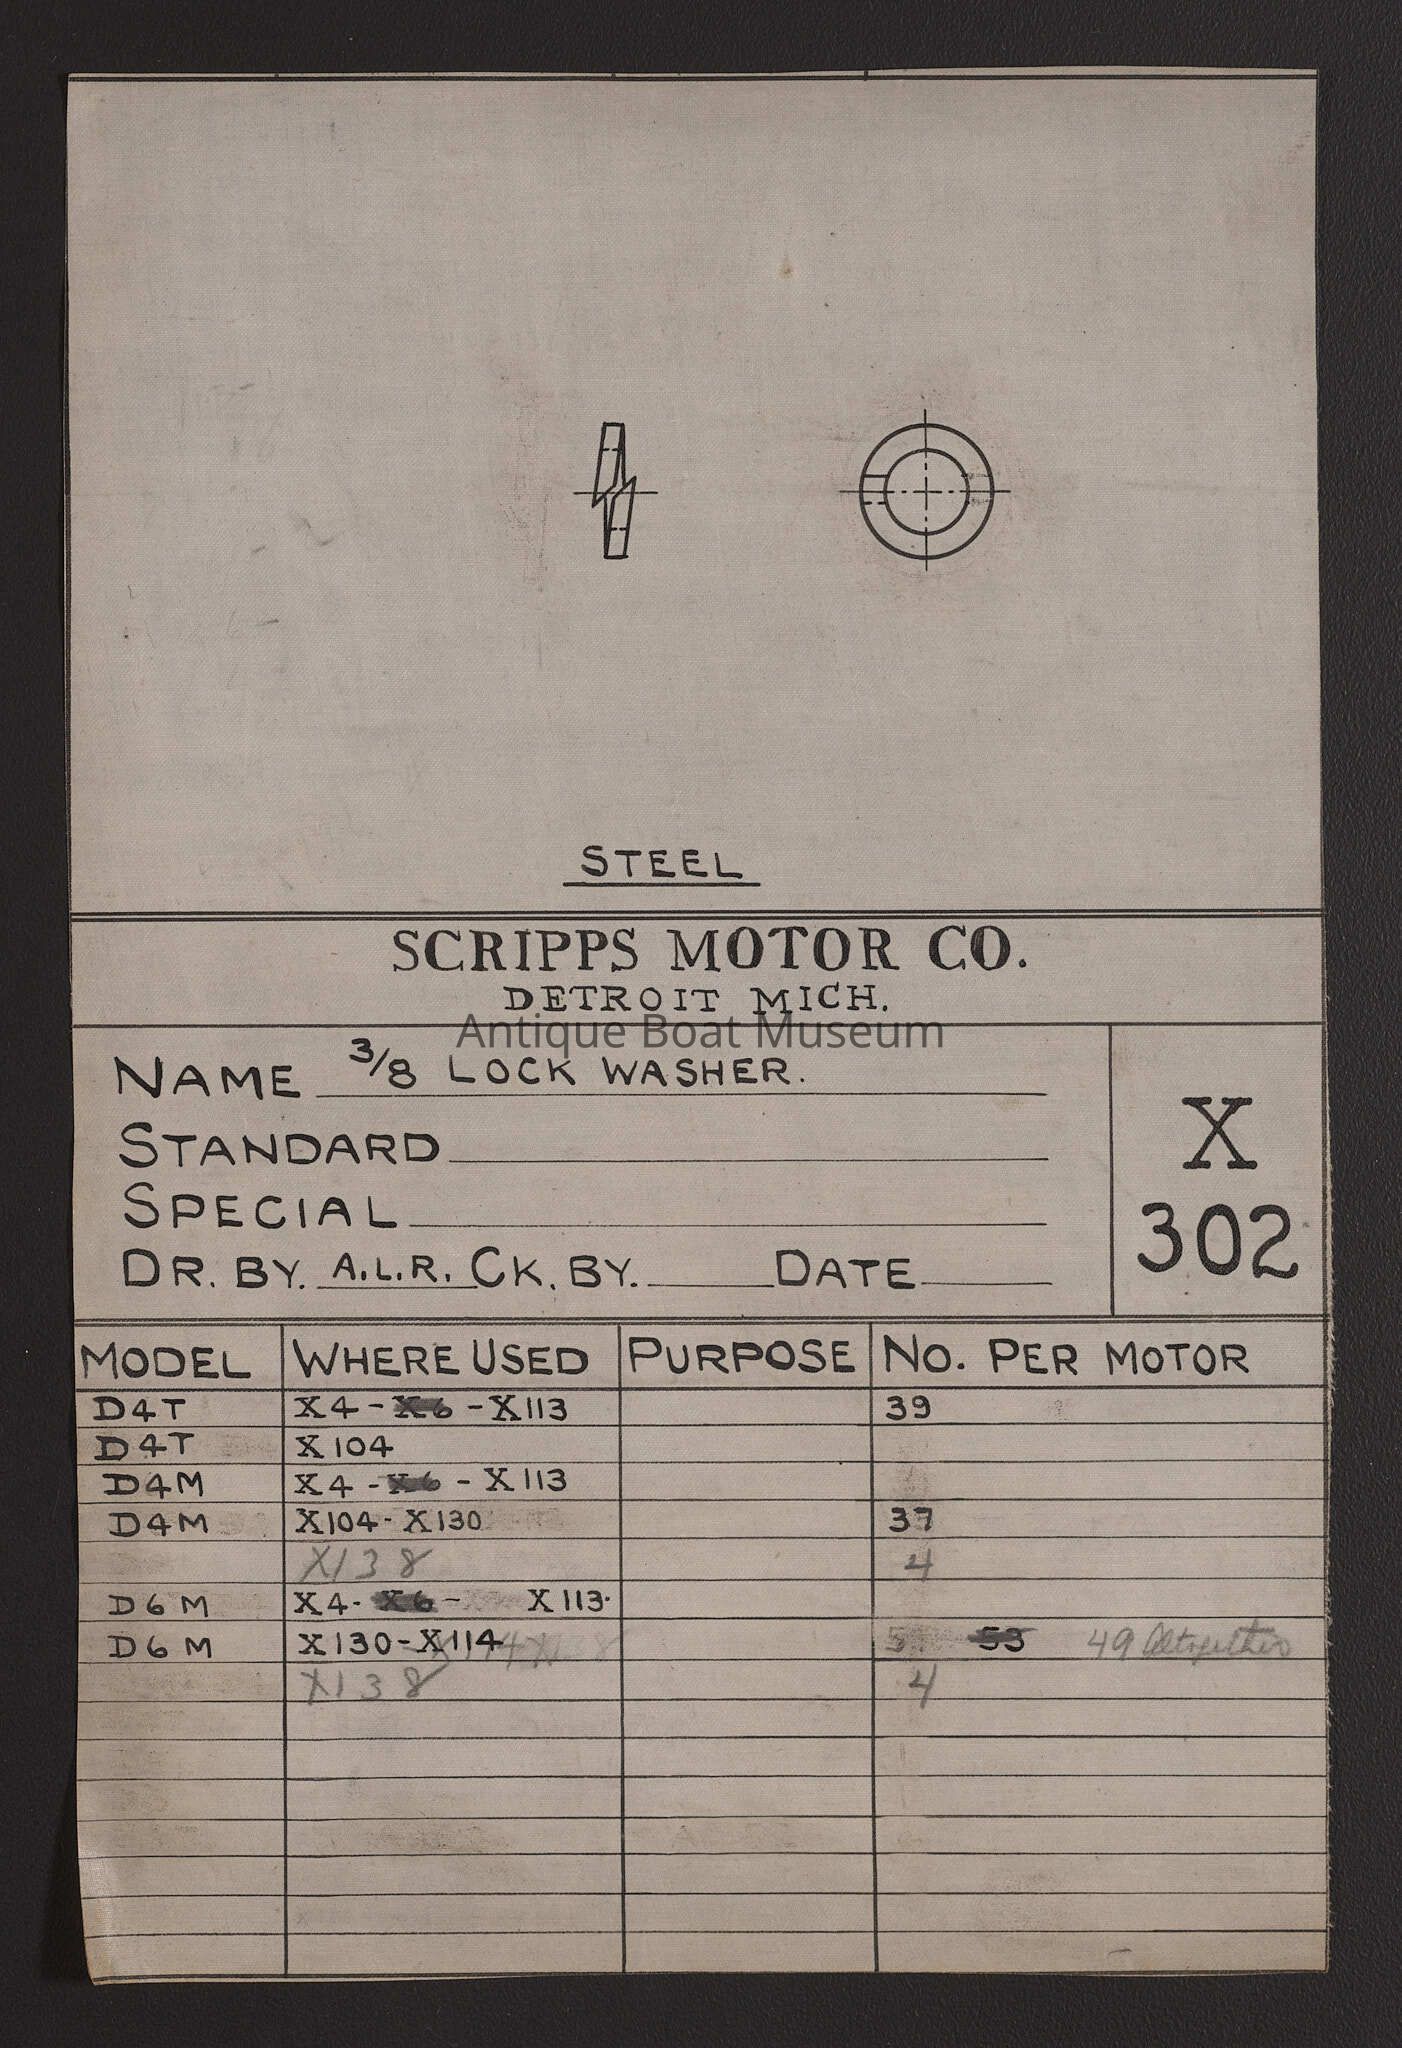 STEEL
SCRIPPS MOTOR CO.
DETROIT MICH.
Antique Boat Museum
NAME 3/8 LOCK WASHER.
STANDARD
SPECIAL
DR. BY. A.L.R. CK. BY. DATE
X
302
MODEL WHERE USED PURPOSE NO. PER MOTOR
D4T X4-X6-X113 39
D4T X104
D4M X4-X6-X113
D4M X104-X130 37
X138 4
D6M X4-X6- X113.
D6M X130-X114 53 49 Altogether
X138 4